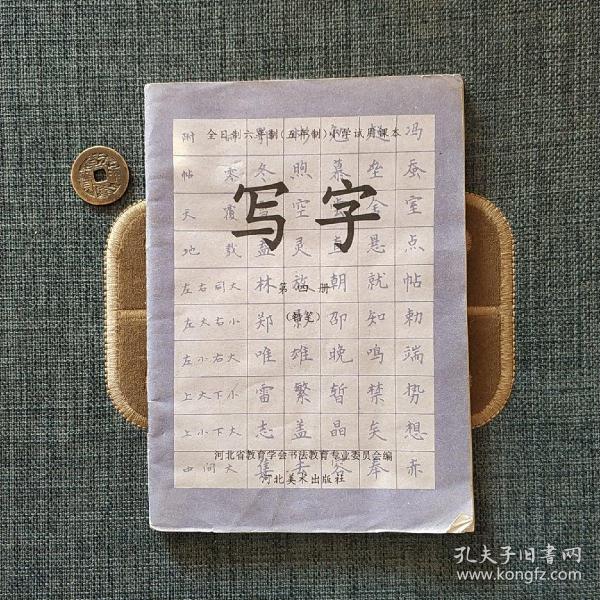 全日制六年制(五年制)小学试用课本
附 冯
帖 冬 煦 慕 垒 蚕
写字
天 覆 空 全 室
地 载 盖 灵 直 悬 点
左右同大 林 朝 就 帖
第四册
左大右小 郑 邵 知 勅
左小右大 唯 雄 晚 鸣 端
上大下小 雷 繁 暂 禁 势
上小下大 志 盖 晶 矣 想
河北省教育学会书法教育专业委员会编
中间大 奉 赤
河北美术出版社
孔夫子旧书网
www.kongfz.com